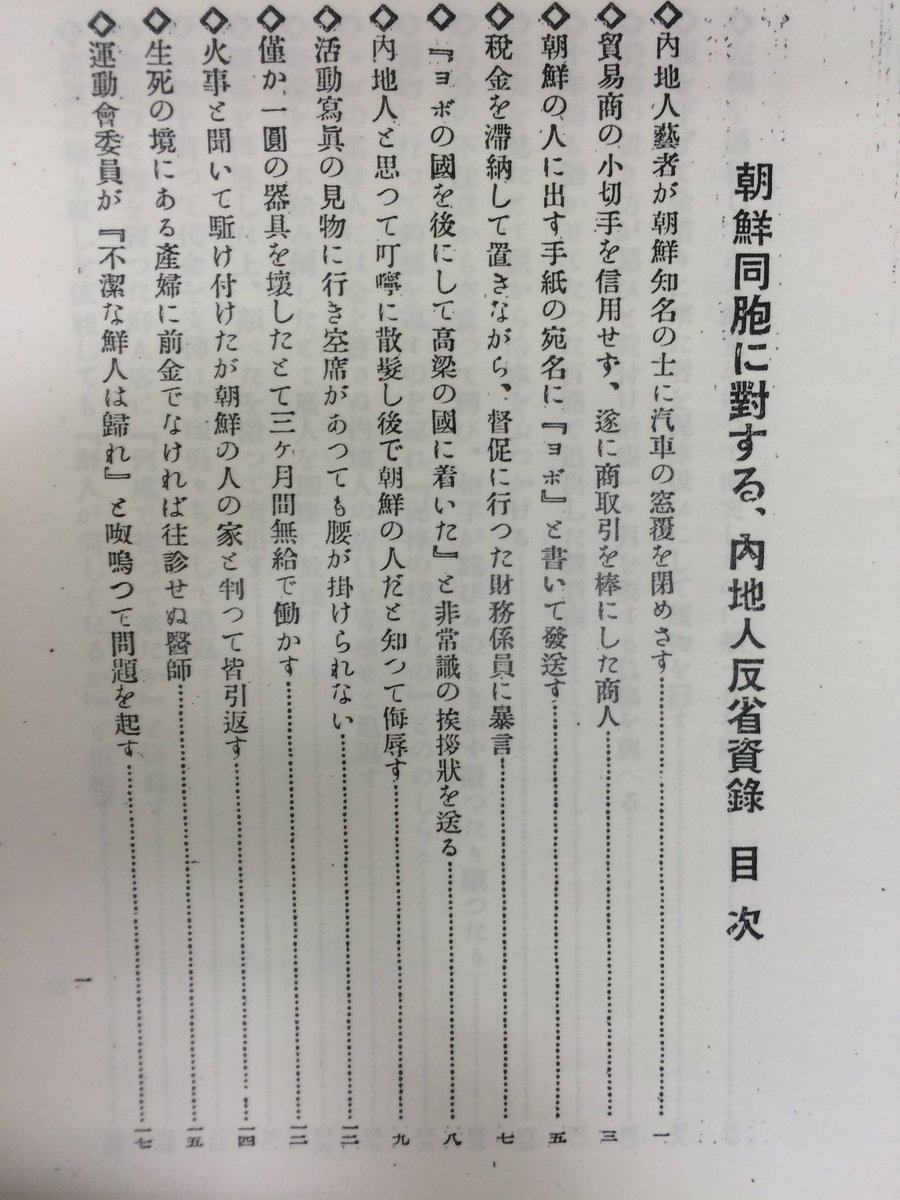 朝鮮同胞に對する、內地人反省資錄 目次
◇內地人藝者が朝鮮知名の士に汽車の窓覆を閉めさす……一
◇貿易商の小切手を信用せず、遂に商取引を棒にした商人……三
◇朝鮮の人に出す手紙の宛名に『ヨボ』と書いて發送す……五
◇稅金を滯納して置きながら、督促に行つた財務係員に暴言……七
◇『ヨボの國を後にして高梁の國に着いた』と非常識の挨拶狀を送る……八
◇內地人と思つて叮嚀に散髮し後で朝鮮の人だと知つて侮辱す……九
◇活動寫眞の見物に行き空席があつても腰が掛けられない……一二
◇僅か一圓の器具を壞したとて三ヶ月間無給で働かす……一二
◇火事と聞いて駈け付けたが朝鮮の人の家と判つて皆引返す……一四
◇生死の境にある產婦に前金でなければ往診せぬ醫師……一五
◇運動會委員が『不潔な鮮人は歸れ』と呶鳴つて問題を起す……一七
一